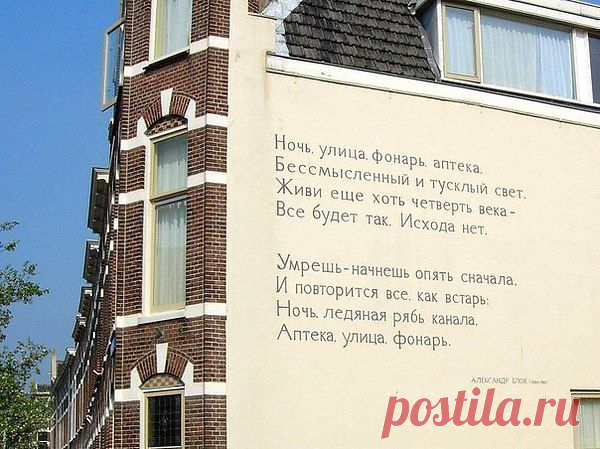 Ночь, улица, фонарь, аптека,
Бессмысленный и тусклый свет.
Живи еще хоть четверть века -
Все будет так. Исхода нет.
Умрешь - начнешь опять сначала,
И повторится все, как встарь:
Ночь, ледяная рябь канала,
Аптека, улица, фонарь.
АЛЕКСАНДР БЛОК
postila.ru